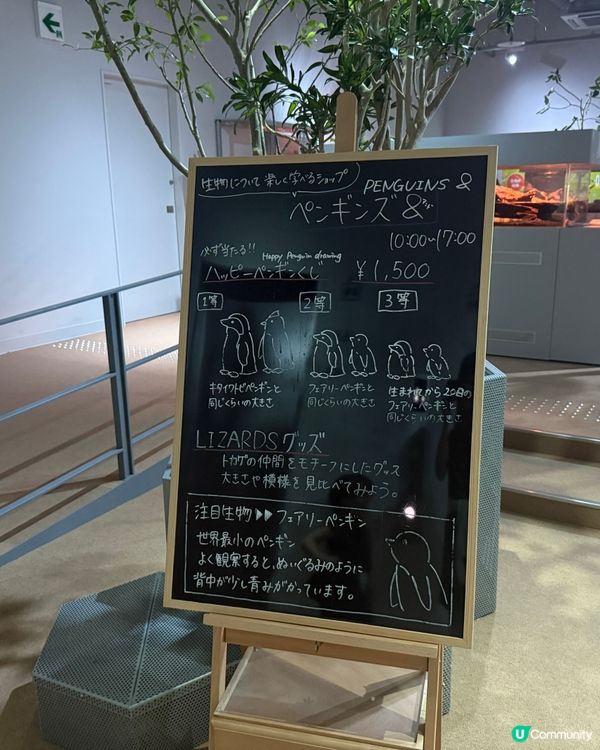 生物について楽しく学べるショップ
PENGUINS &
ペンギンズ &
10:00~17:00
必ず当たる!! Happy Penguin drawing
ハッピーペンギンくじ ¥1,500
1等 2等 3等
キタイワトビペンギンと
同じくらいの大きさ
フェアリーペンギンと
同じくらいの大きさ
生まれてから20日の
フェアリーペンギンと
同じくらいの大きさ
LIZARDSグッズ
トカゲの仲間をモチーフにしたグッズ
大きさや模様を見比べてみよう。
注目生物▶▶フェアリーペンギン
世界最小のペンギン
よく観察すると、ぬいぐるみのように
背中が少し青みがかっています。
U Community